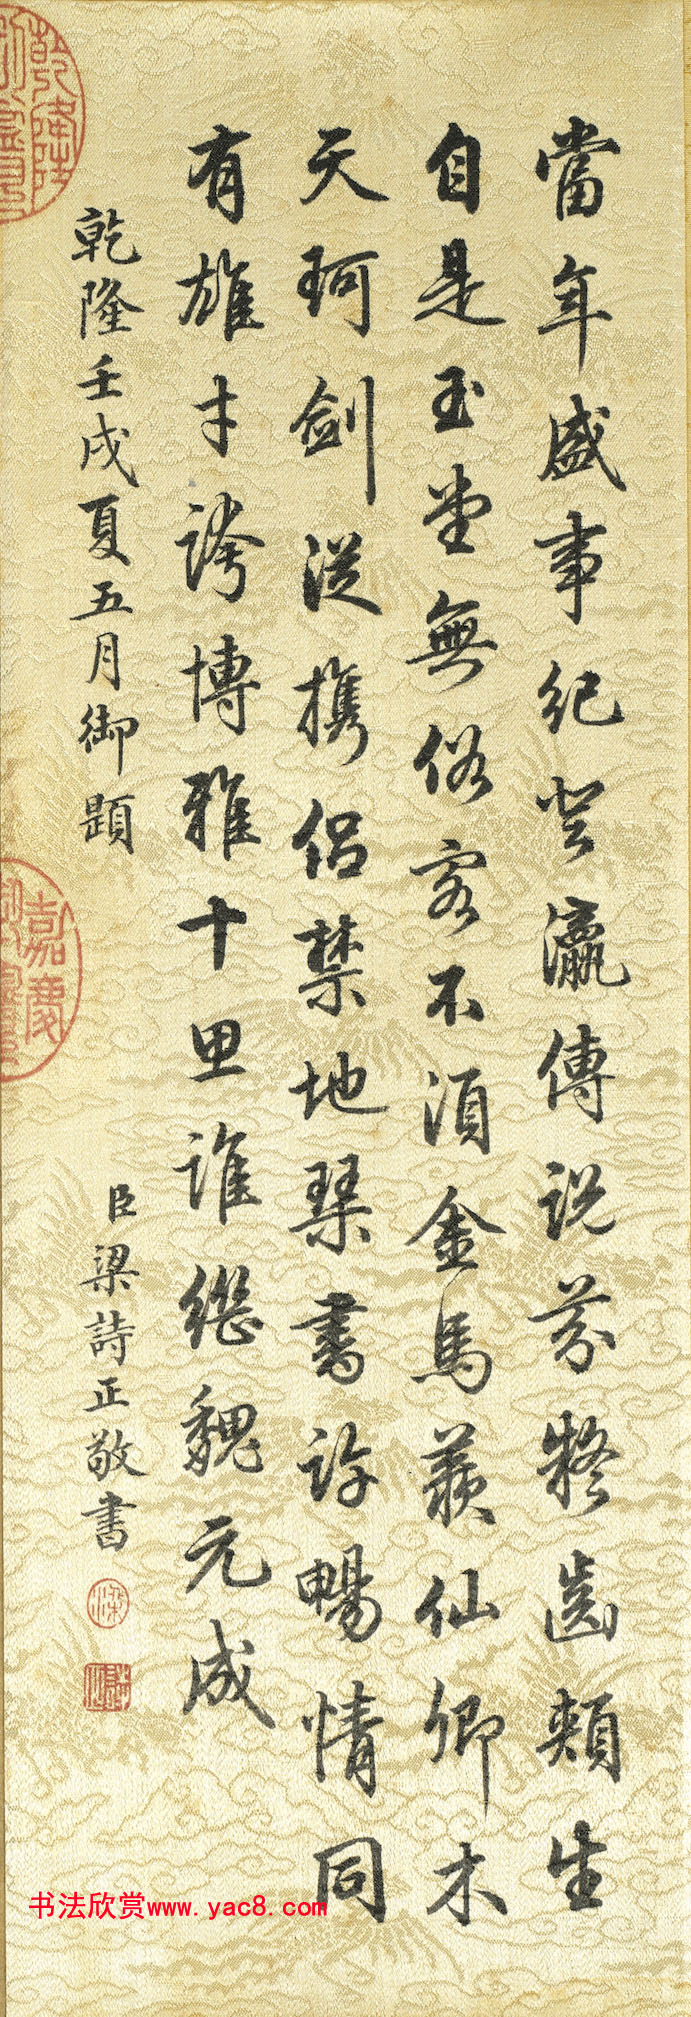 當年盛事紀登瀛傳説芬凝齒頰生
自是玉堂無俗客不須金馬羨仙卿木
天珂劍從攜侶禁地琴書許暢情同
有雄才誇博雅十思誰繼魏元成
乾隆壬戌夏五月御題
臣梁詩正敬書
乾隆
嘉慶
书法欣赏www.yac8.com